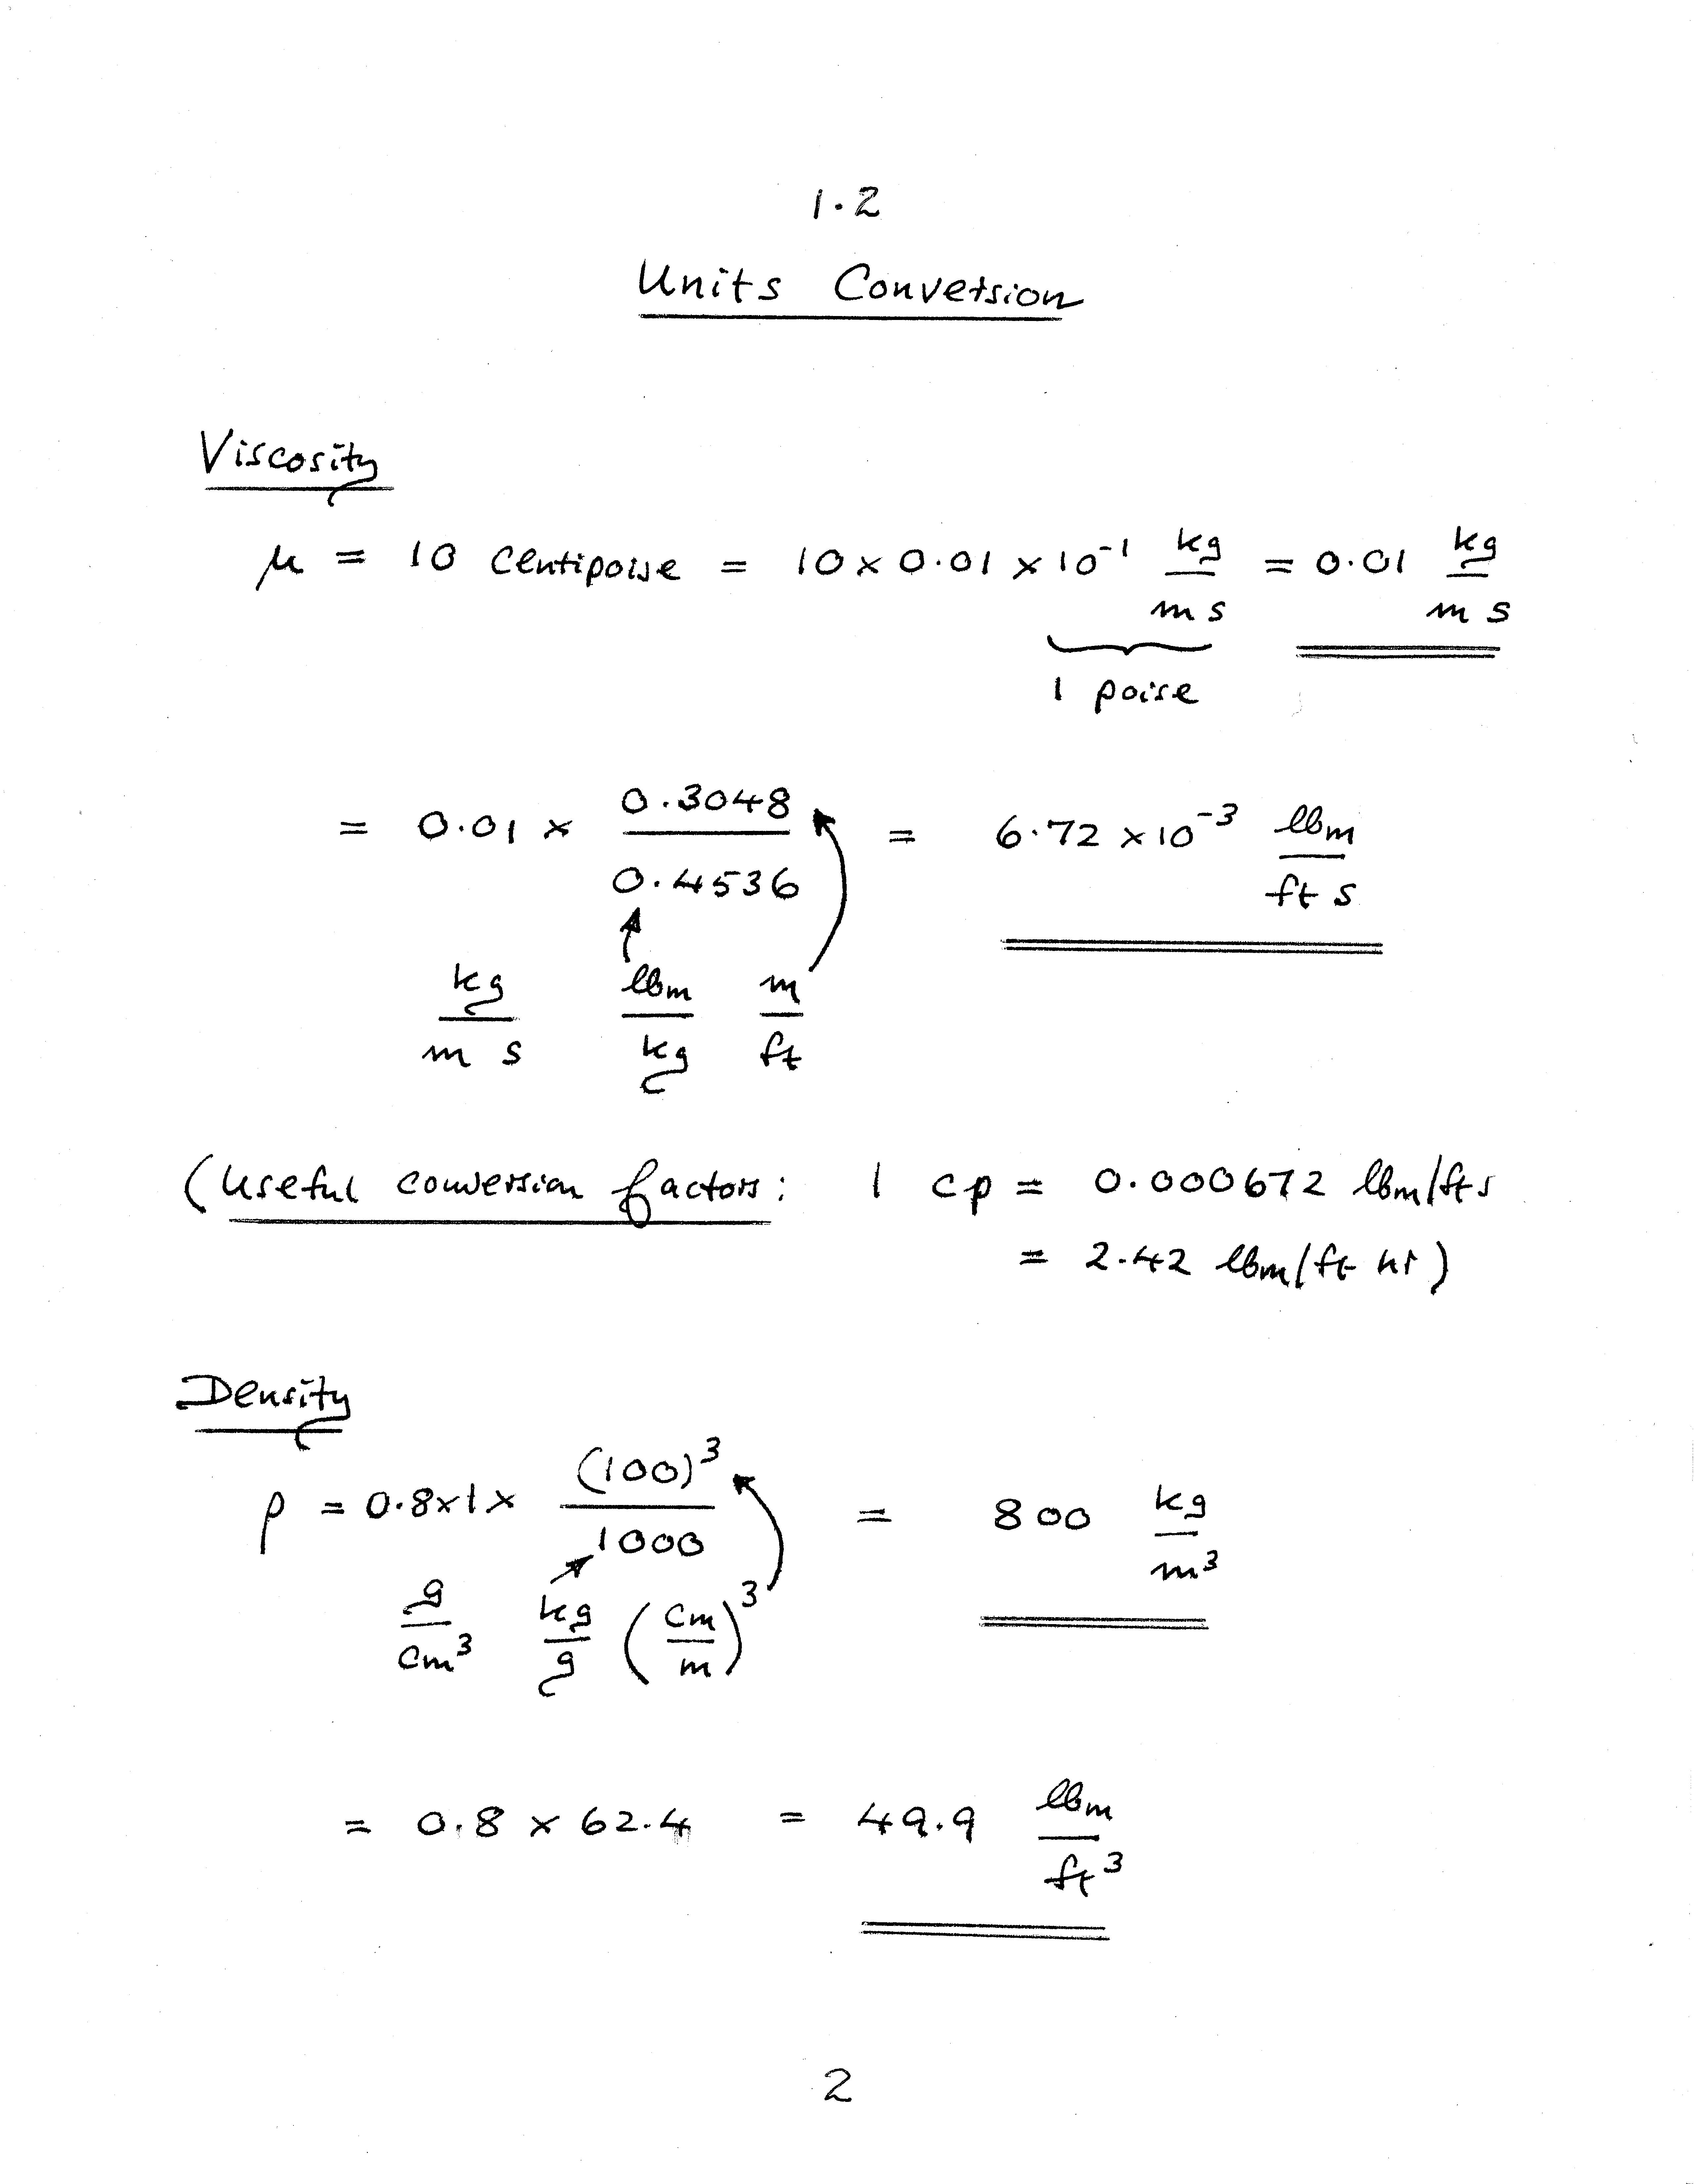 1.2
Units Conversion
Viscosity
μ = 10 centipoise = 10 × 0.01 × 10⁻¹ kg/m s = 0.01 kg/m s
1 poise
= 0.01 × 0.3048/0.4536 = 6.72 × 10⁻³ lbm/ft s
kg/m s lbm/kg m/ft
(Useful conversion factors: 1 cp = 0.000672 lbm/ft s
= 2.42 lbm/ft hr)
Density
ρ = 0.8 × 1 × (100)³/1000 = 800 kg/m³
g/cm³ kg/g (cm/m)³
= 0.8 × 62.4 = 49.9 lbm/ft³
2